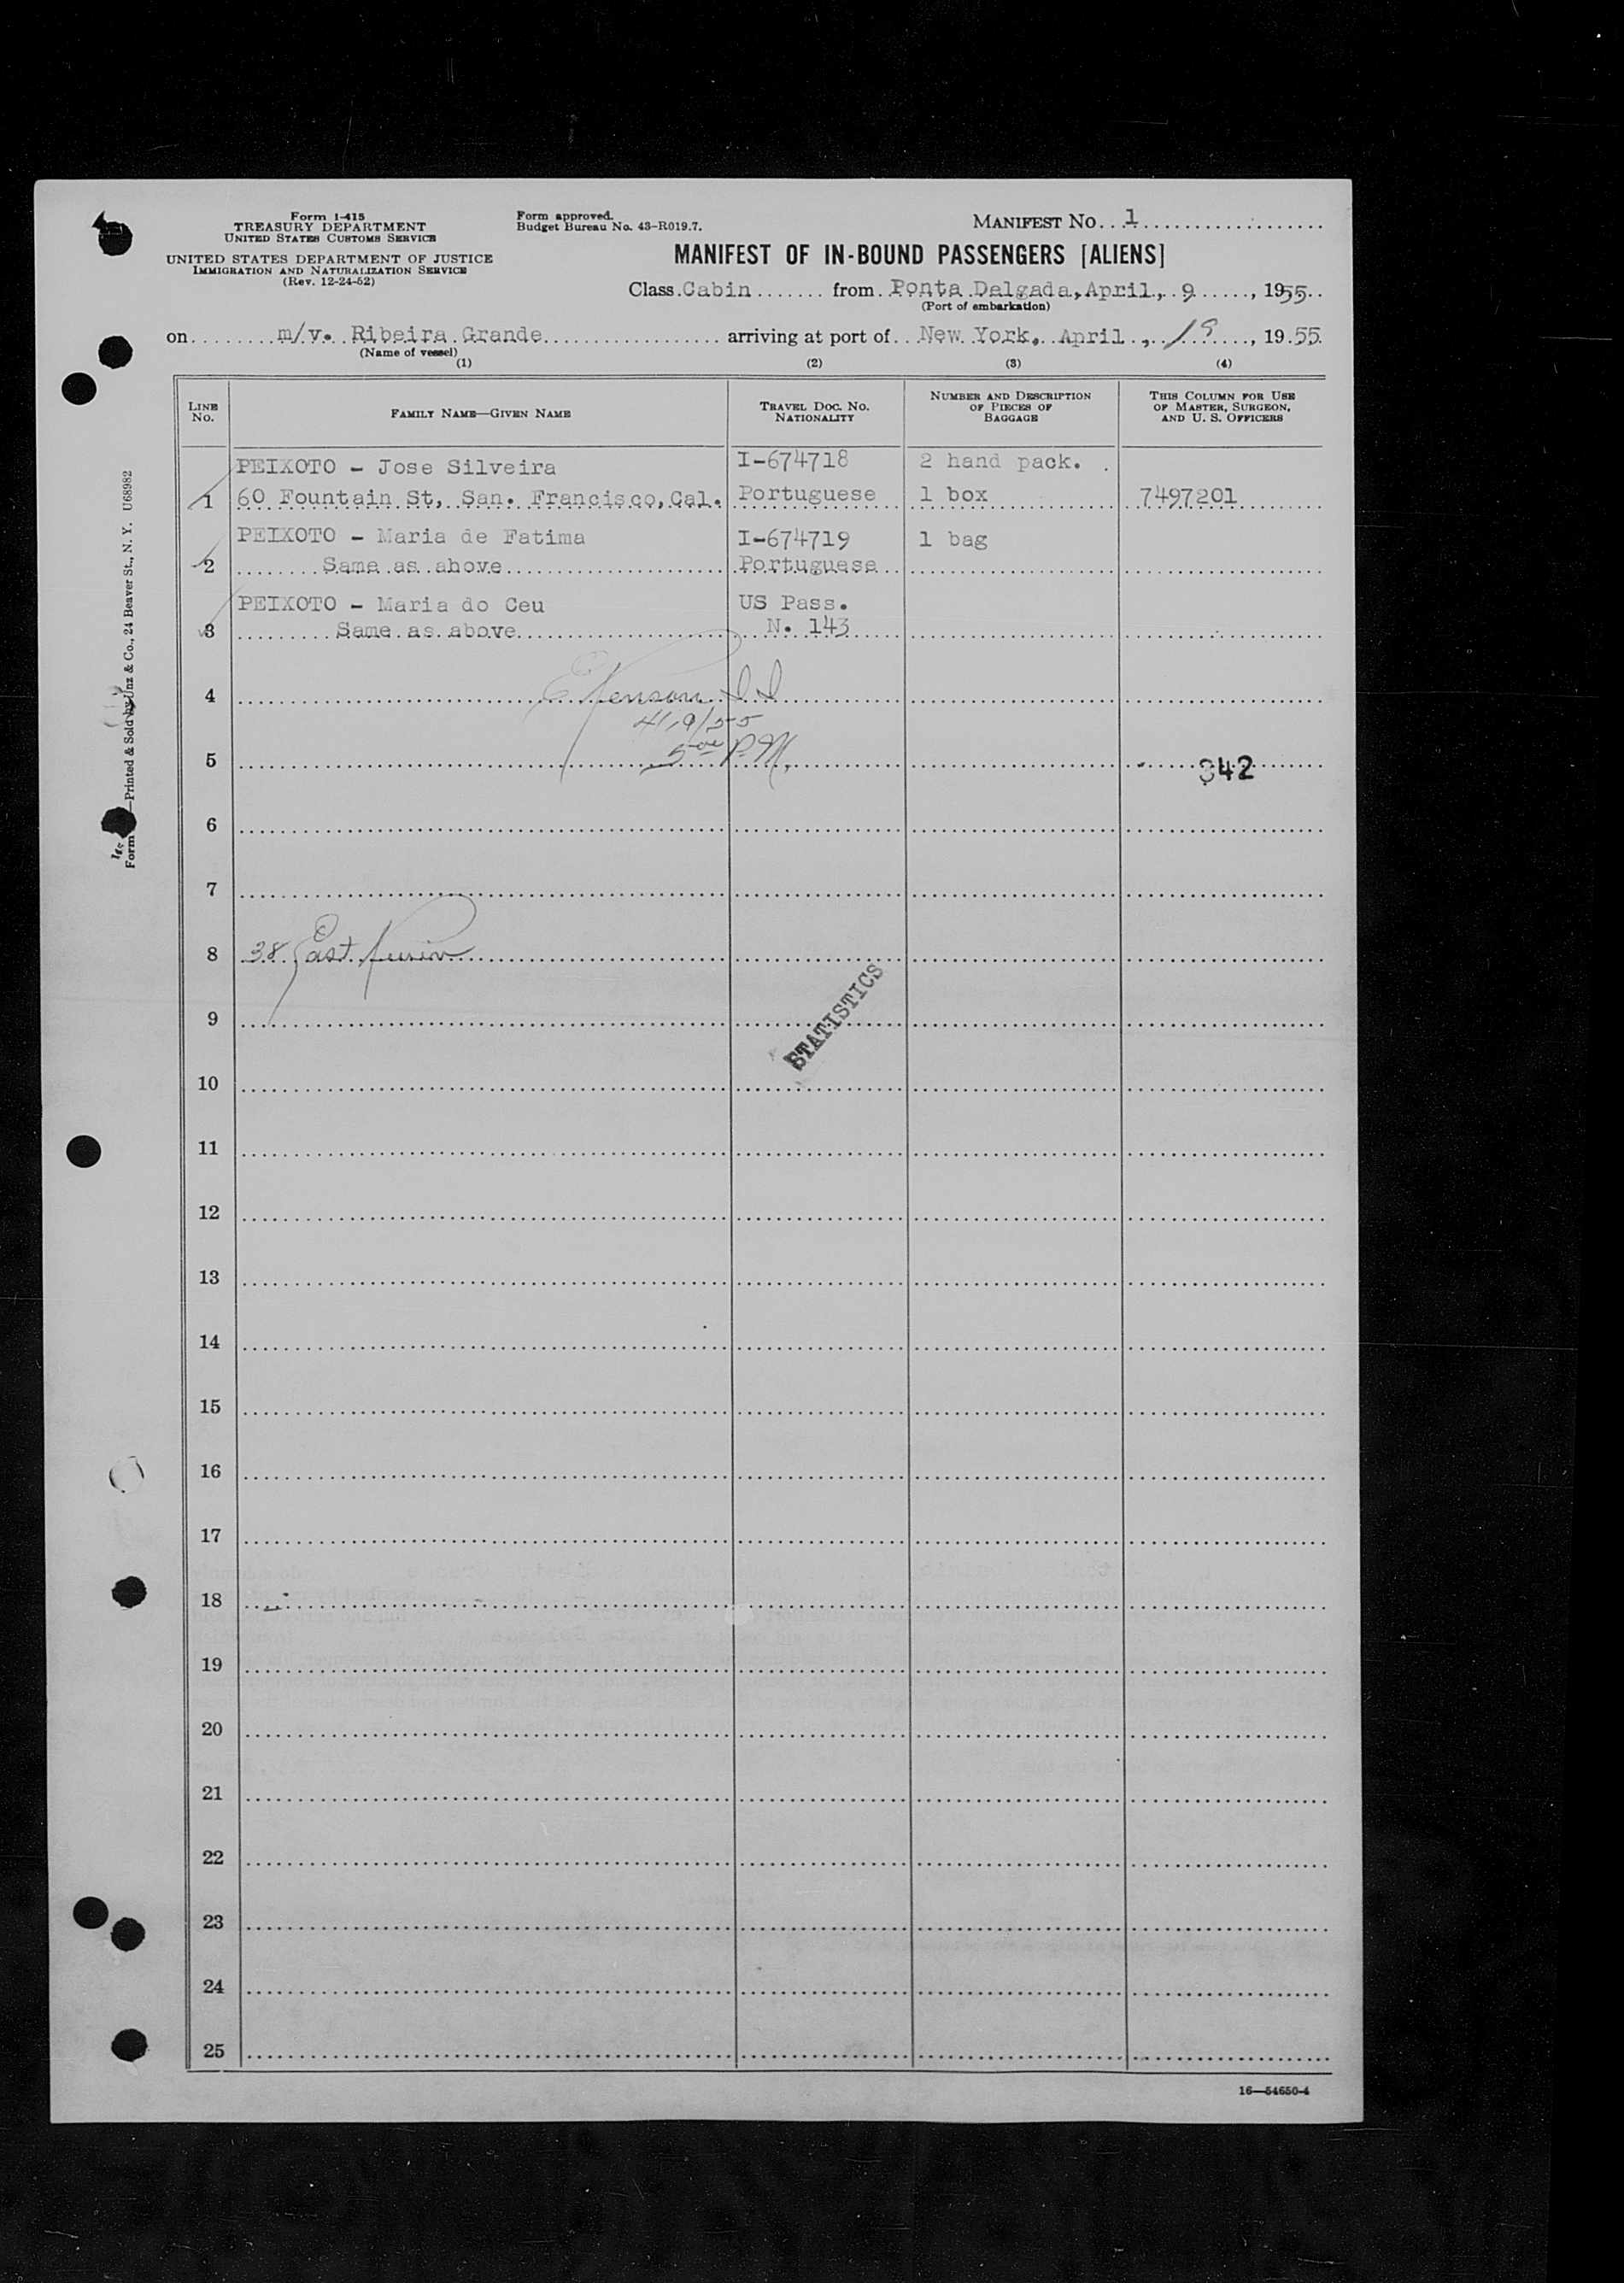 Form I-415
TREASURY DEPARTMENT
UNITED STATES CUSTOMS SERVICE
UNITED STATES DEPARTMENT OF JUSTICE
IMMIGRATION AND NATURALIZATION SERVICE
(Rev. 12-24-52)
Form approved.
Budget Bureau No. 43-R019.7.
MANIFEST No. 1
MANIFEST OF IN-BOUND PASSENGERS [ALIENS]
Class Cabin from Ponta Delgada, April, 9, 1955
(Port of embarkation)
on m/v. Ribeira Grande arriving at port of New York, April, 19, 1955
(Name of vessel)
(1) (2) (3) (4)
LINE No. FAMILY NAME—GIVEN NAME TRAVEL DOC. NO. NATIONALITY NUMBER AND DESCRIPTION OF PIECES OF BAGGAGE THIS COLUMN FOR USE OF MASTER, SURGEON, AND U. S. OFFICERS
PEIXOTO - Jose Silveira I-674718 2 hand pack.
1 60 Fountain St, San. Francisco, Cal. Portuguese 1 box 7497201
PEIXOTO - Maria de Fatima I-674719 1 bag
2 Same as above Portuguese
PEIXOTO - Maria do Ceu US Pass.
3 Same as above N. 143
4
4/19/55
5 5 00 P.M. 342
6
7
8 38 East
9
STATISTICS
10
11
12
13
14
15
16
17
18
19
20
21
22
23
24
25
16—54650-4
Form —Printed & Sold by Unz & Co., 24 Beaver St., N. Y. U68982